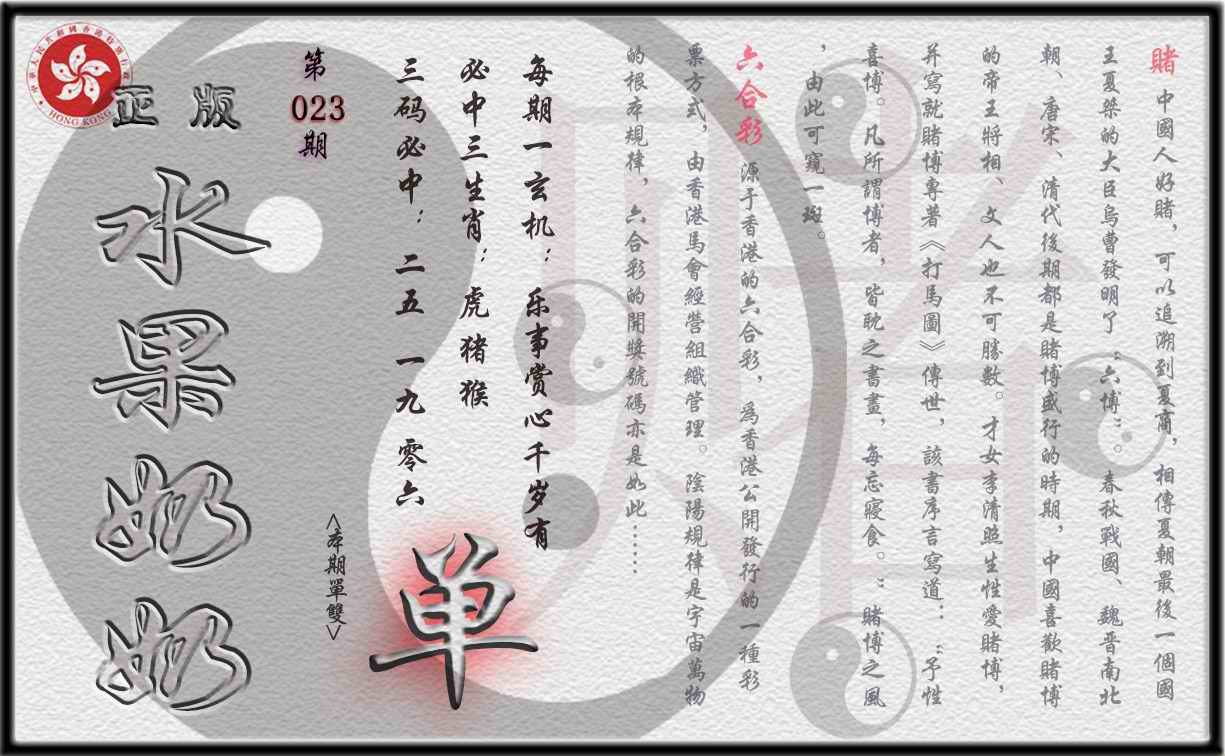 賭 中國人好賭，可以追溯到夏商，相傳夏朝最後一個國
王夏桀的大臣烏曹發明了“六博”。春秋戰國、魏晉南北
朝、唐宋、清代後期都是賭博盛行的時期，中國喜歡賭博
的帝王將相、文人也不可勝數。才女李清照生性愛賭博，
并寫就賭博專著《打馬圖》傳世，該書序言寫道：“予性
喜博。凡所謂博者，皆耽之晝，每忘寢食。”賭博之風
，由此可窺一斑。
六合彩 源于香港的六合彩，爲香港公開發行的一種彩
票方式，由香港馬會經營組織管理。陰陽規律是宇宙萬物
的根本規律，六合彩的開獎號碼亦是如此……
每期一玄机：乐事赏心千岁有
必中三生肖：虎猪猴
三码必中：二五 一九 零六
單
<本期單雙>
第
023
期
正版
水果奶奶
HONG KONG